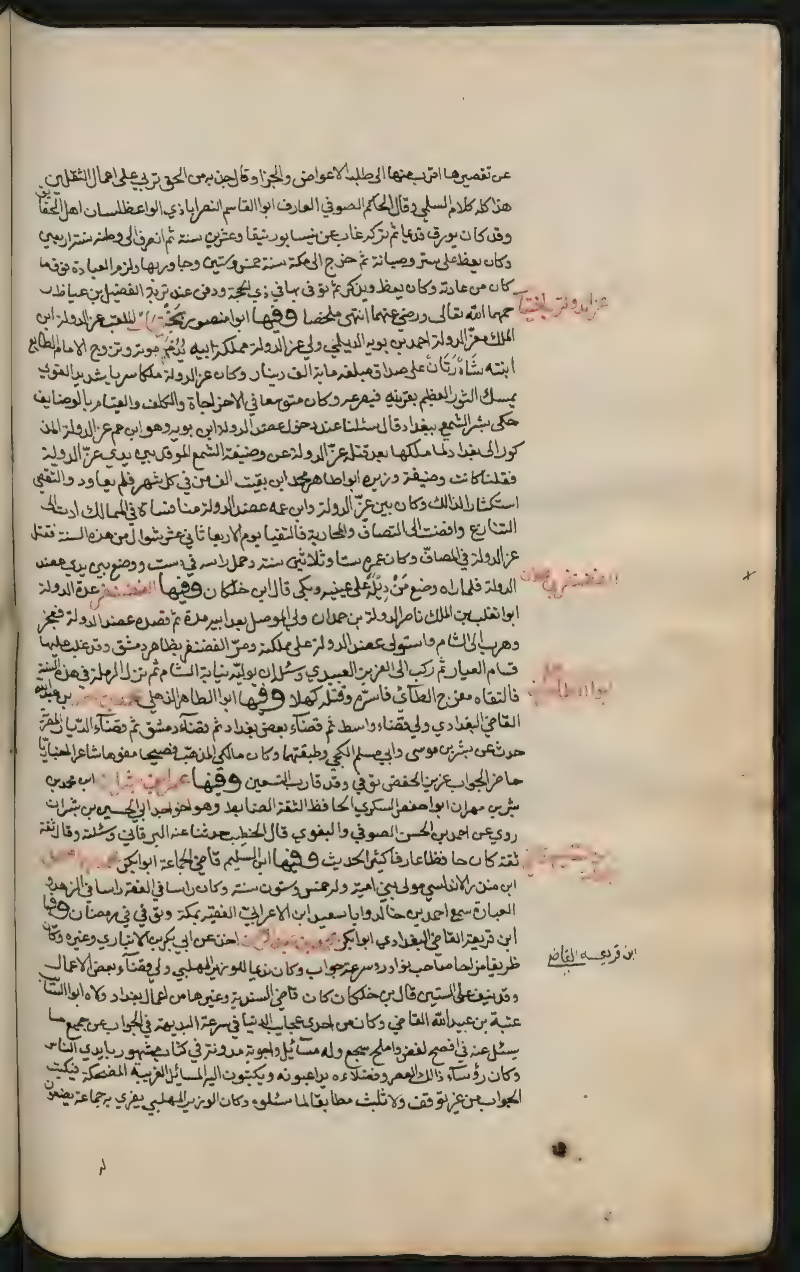 عن تقصيرها اقرب منها الى طلب الاعواض والجزا وقال جذبة من الحق تربي على اعمال الثقلين
هذا كله كلام السلمي وقال الحاكم الصوفي العارف ابو القاسم النصراباذي الواعظ لسان اهل الحقايق
وقد كان يورق قديما ثم تركه غاب عن نيسابور نيفا وعشرين سنة ثم انصرف الى وطنه سنة اربعين
وكان يعظ على ستر وصيانة ثم خرج الى مكة سنة خمس وستين وجاور بها ولزم العبادة فوق ما
كان من عادته وكان يعظ ويذكر ثم توفي بها في ذي الحجة ودفن عند تربة الفضيل بن عياض
رحمهما الله تعالى ورضي عنهما انتهى ملخصا وفيها ابو منصور بختيار الملقب عز الدولة ابن
عز الدولة بختيار
الملك معز الدولة احمد بن بويه الديلمي ولي عز الدولة مملكة ابيه يوم موته وتزوج الامام الطايع
ابنته شاه زنان على صداق مبلغه ماية الف دينار وكان عز الدولة ملكا سريا شديد القوى
يمسك الثور العظيم بقرنيه فيصرعه وكان متوسعا في الاخراجات والكلف والقيام بالوضايف
حكى بشر الشمعي ببغداد قال سئلنا عند دخول عضد الدولة ابن بويه وهو ابن عم عز الدولة المذ
كور الى بغداد لما ملكها بعد قتله عز الدولة عن وضيفة الشمع الموقد بين يدي عز الدولة
فقلنا كانت وضيفة وزيره ابو طاهر محمد ابن بقيت الف من في كل شهر فلم يعاود والتقصي
استكثارا لذالك وكان بين عز الدولة وابن عمه عضد الدولة منافسات في الممالك ادت الى
التنازع وافضت الى التصاف والمحاربة فالتقيا يوم الاربعا ثاني عشر شوال من هذه السنة فقتل
عز الدولة في المصاف وكان عمره ستا وثلاثين سنة وحمل راسه في دست ووضع بين يدي عضد
الدولة فلما راه وضع منديله على عينيه وبكى قال ابن خلكان وفيها الغضنفر عدة الدولة
الغضنفر بن حمدان
ابو تغلب بن الملك ناصر الدولة بن حمدان ولي الموصل بعد ابيه مدة ثم قصده عضد الدولة فعجز
وهرب الى الشام واستولى عضد الدولة على مملكته ومر الغضنفر بظاهر دمشق وقد غلب عليها
قسام العيار ثم ركب الى العزيز العبيدي وسئله ان يوليه نيابة الشام ثم نزل الرملة في هذه السنة
فالتقاه مفرج الطائي فاسره وقتله كهلا وفيها ابو الطاهر الذهلي محمد بن احمد بن عبدالله
ابو الطاهر
القاضي البغدادي ولي قضاء واسط ثم قضاء بعض بغداد ثم قضاء دمشق ثم قضاء الديار المصرية
حدث عن بشر بن موسى وابي مسلم الكجي وطبقتهما وكان مالكي المذهب فصيحا مفوها شاعرا اخباريا
حاضر الجواب غزير الحفض توفي وقد قارب التسعين وفيها عمر بن بشران ابن محمد بن
بشر بن مهران ابو حفص السكري الحافظ الثقة الضابط وهو اخو جد ابي الحسين بن بشران
روى عن احمد بن الحسن الصوفي والبغوي قال الخطيب حدثنا عنه البرقاني وسئلته وقال ثقة
ثقة كان حافظا عارفا كثير الحديث وفيها ابن السليم قاضي الجماعة ابو بكر محمد بن اسحق
ابن منذر الاندلسي مولى بني امية وله خمس وستون سنة وكان راسا في الفقه راسا في الزهد و
العبادة سمع احمد بن خالد وابا سعيد ابن الاعرابي الفقيه بمكة وتوفي في رمضان وفيها
ابن قريعة القاضي البغدادي ابو بكر محمد بن عبد الرحمن اخذ عن ابي بكر بن الانباري وغيره وكان
ابن قريعه القاضي
ظريفا مزاحا صاحب نوادر وسرعة جواب وكان نديما للوزير المهلبي ولي قضاء بعض الاعمال
وقد نيف على الستين قال بن خلكان كان قاضي السندية وغيرها من اعمال بغداد ولاه ابو السائب
عتبة بن عبيد الله القاضي وكان من احدى عجايب الدنيا في سرعة البديهة في الجواب عن جميع ما
يسئل عنه في افصح لفض واملح سجع وله مسائل واجوبة مدونة في كتاب مشهور بايدي الناس
وكان رؤساء ذالك العصر وفضلاءه يداعبونه ويكتبون اليه المسائل الغريبة المضحكة فيكتب
الجواب من غير توقف ولا تلبث مطابقا لما سئلوه وكان الوزير المهلبي يغري به جماعة يضعون